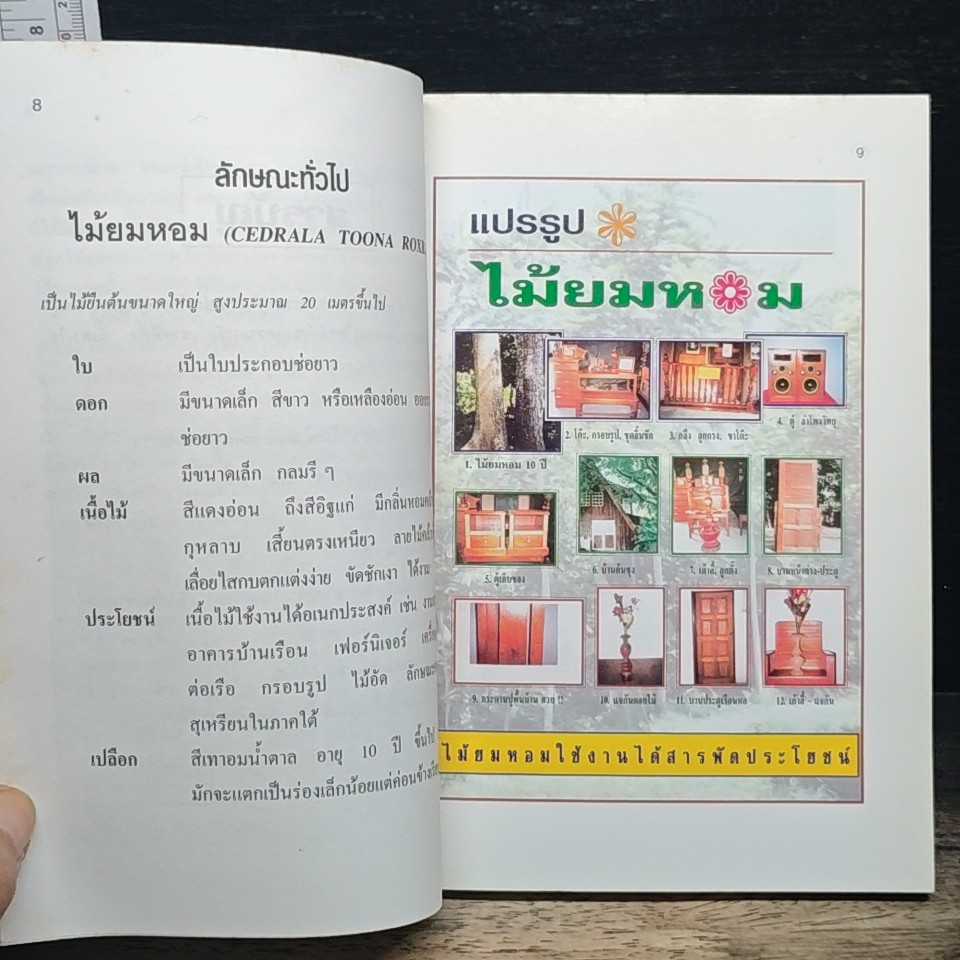 8
ลักษณะทั่วไป
ไม้ยมหอม (CEDRALA TOONA
เป็นไม้ยืนต้นขนาดใหญ่ สูงประมาณ 20 เมตรขึ้นไป
ใบ เป็นใบประกอบช่อยาว
ดอก มีขนาดเล็ก สีขาว หรือเหลืองอ่อน
ช่อยาว
ผล มีขนาดเล็ก กลมรี ๆ
เนื้อไม้ สีแดงอ่อน ถึงสีอิฐแก่ มีกลิ่นหอม
กุหลาบ เสี้ยนตรงเหนียว ลายไม้
เลื่อยไสกบตกแต่งง่าย ขัดชักเงา
ประโยชน์ เนื้อไม้ใช้งานได้อเนกประสงค์ เช่น
อาคารบ้านเรือน เฟอร์นิเจอร์
ต่อเรือ กรอบรูป ไม้อัด
สุเหรียนในภาคใต้
เปลือก สีเทาอมน้ำตาล อายุ 10 ปี ขึ้นไป
มักจะแตกเป็นร่องเล็กน้อยแต่ค่อนข้าง
9
แปรรูป
ไม้ยมหอม
1. ไม้ยมหอม 10 ปี
2. โต๊ะ, กรอบรูป,
3. กลึง ลูกกรง, ขาโต๊ะ
4. ตู้ ลำโพงวิทยุ
5. ตู้เก็บของ
6. บ้านต้นซุง
7. เก้าอี้, ลูกติ่ง
8. บานหน้าต่าง-ประตู
9. กระดานปูพื้นบ้าน สวย !!
10. แจกันดอกไม้
11. บานประตูเรือนหอ
12. เก้าอี้ - แจกัน
ไม้ยมหอมใช้งานได้สารพัดประโยชน์